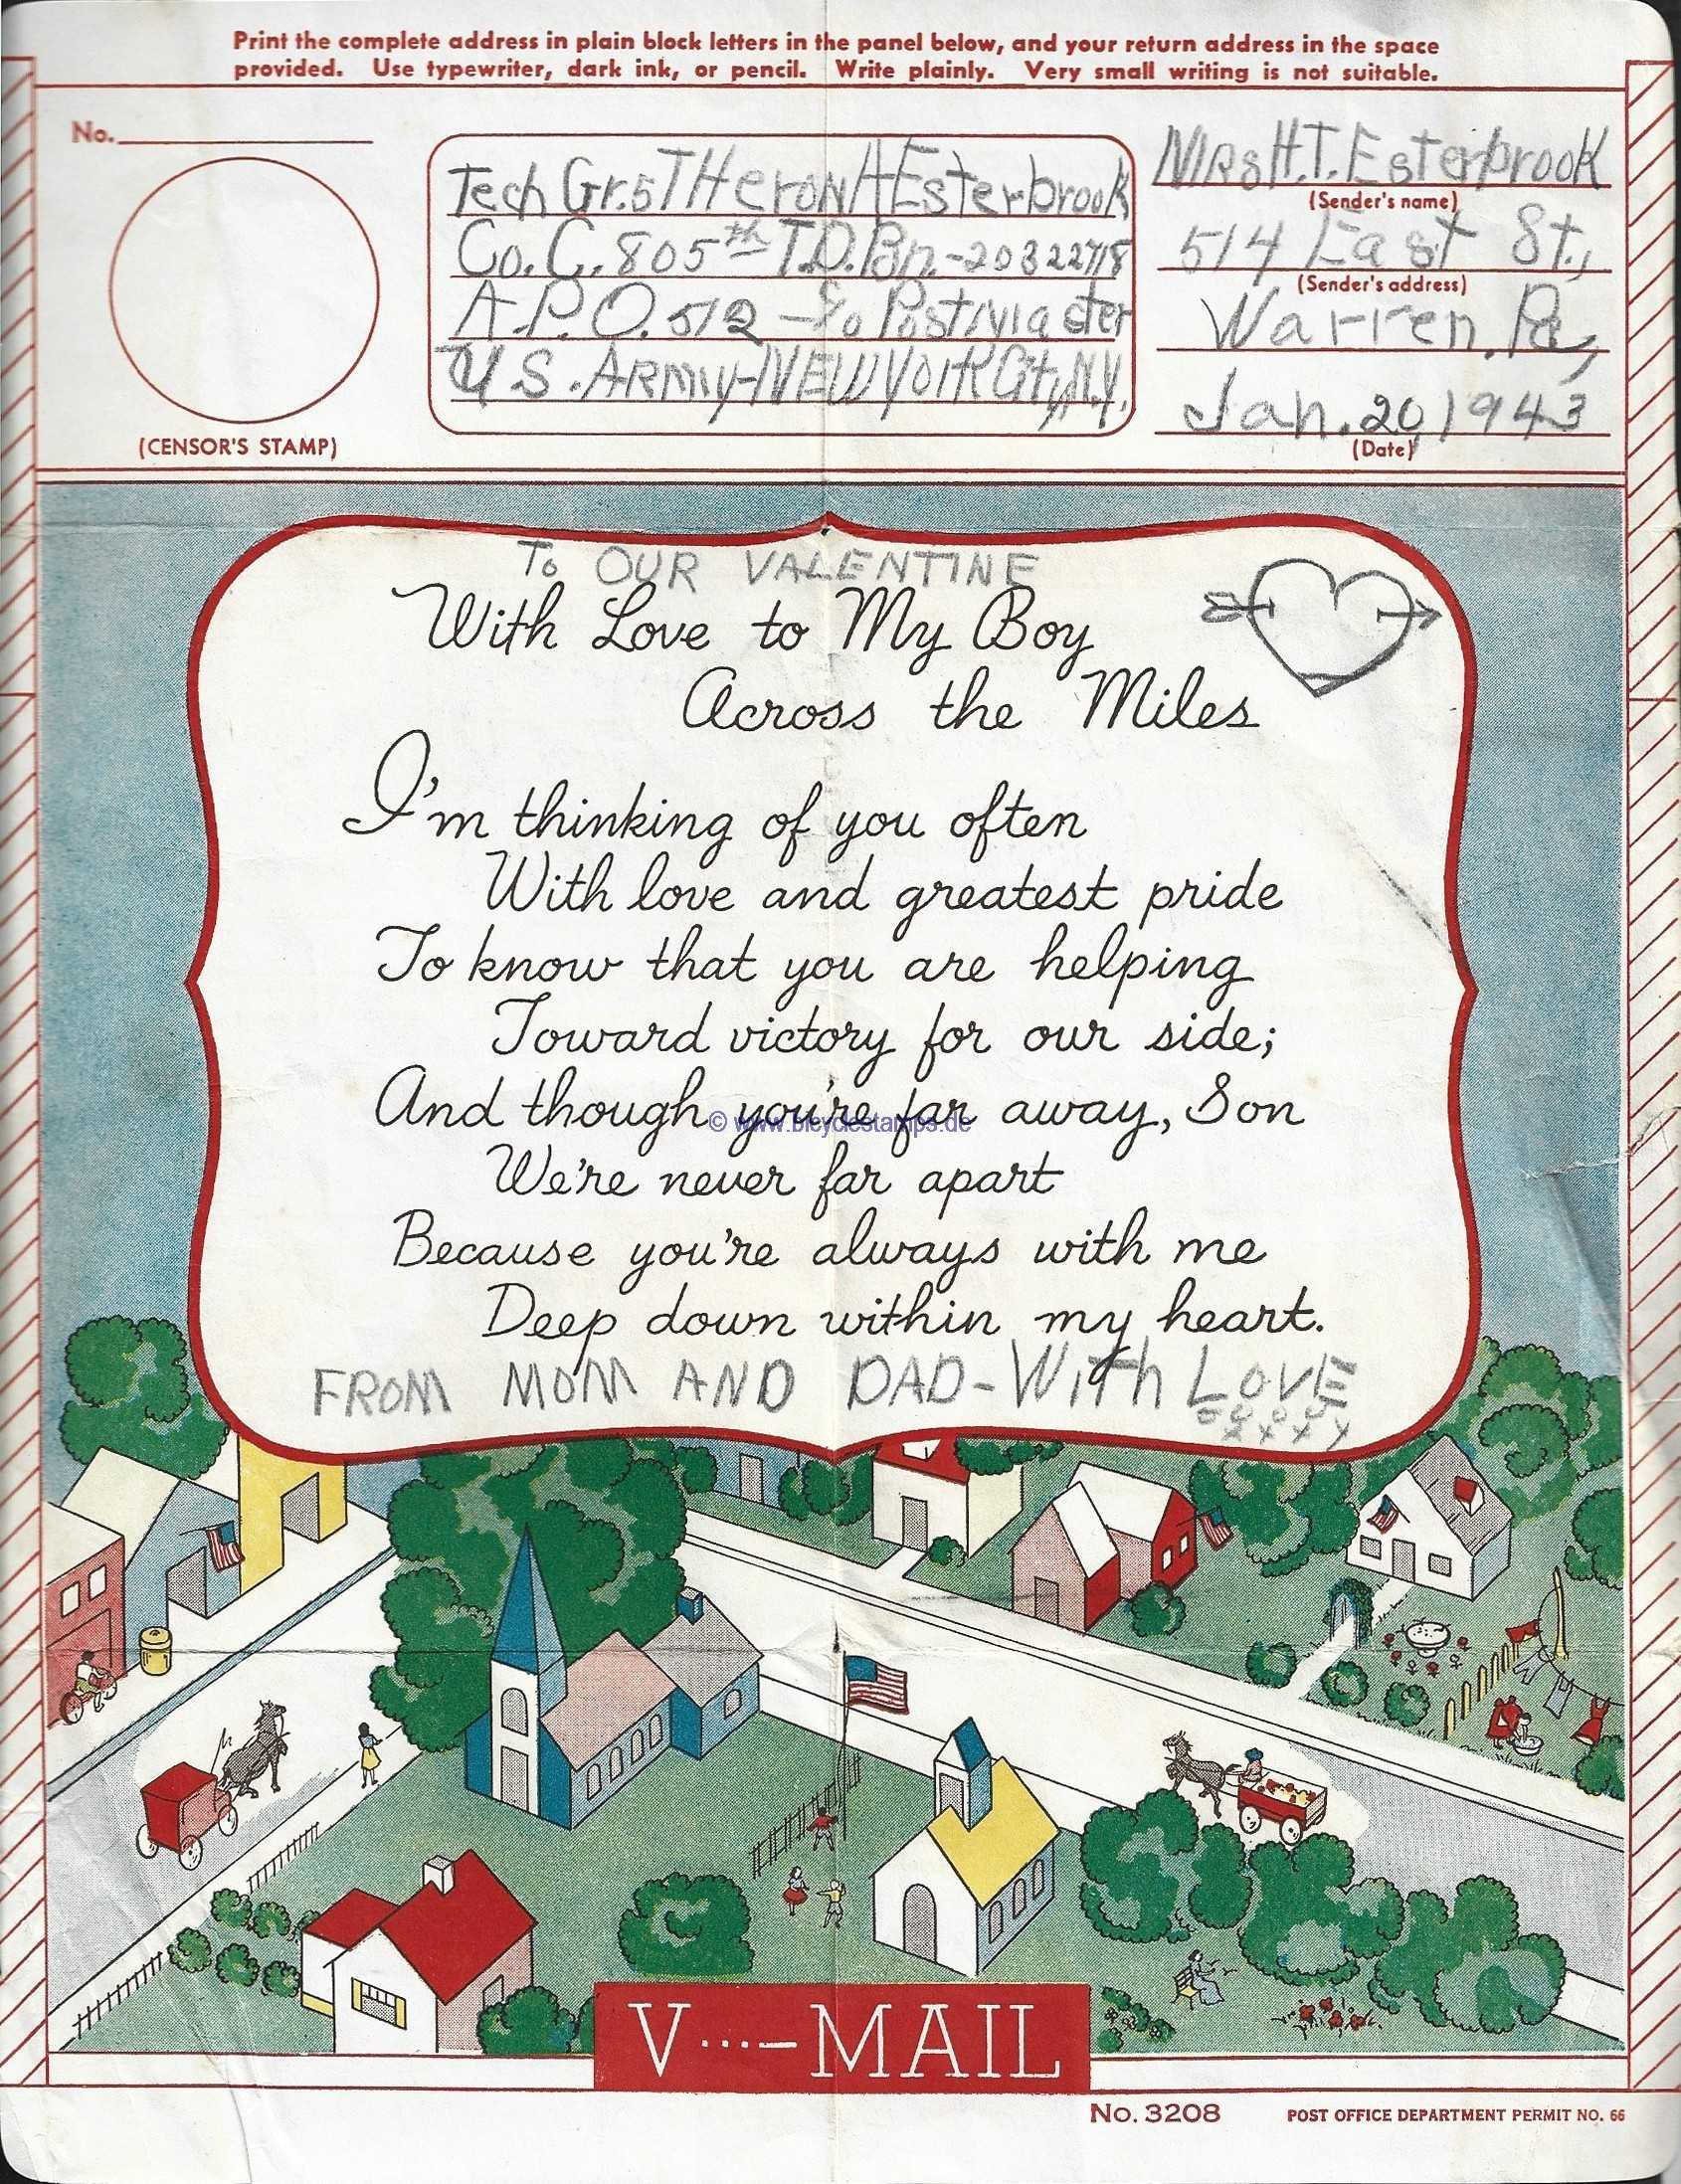 Print the complete address in plain block letters in the panel below, and your return address in the space
provided. Use typewriter, dark ink, or pencil. Write plainly. Very small writing is not suitable.
No.
(CENSOR'S STAMP)
Tech Gr. 5 THeroN H Esterbrook
Co. C. 805th T.D. Bn. - 20322718
A.P.O. 512 - c/o PostMaster
U.S. ARMY - NEW York City, N.Y.
MRS H.T. Esterbrook
(Sender's name)
514 East St.,
(Sender's address)
Warren, Pa,
Jan. 20, 1943
(Date)
To OUR VALENTINE
With Love to My Boy
Across the Miles
I'm thinking of you often
With love and greatest pride
To know that you are helping
Toward victory for our side;
And though you're far away, Son
© www.bicyclestamps.de
We're never far apart
Because you're always with me
Deep down within my heart.
FROM MOM AND DAD - WITh LOVE
o o o o o
x x x x
V ···— MAIL
No. 3208
POST OFFICE DEPARTMENT PERMIT NO. 66